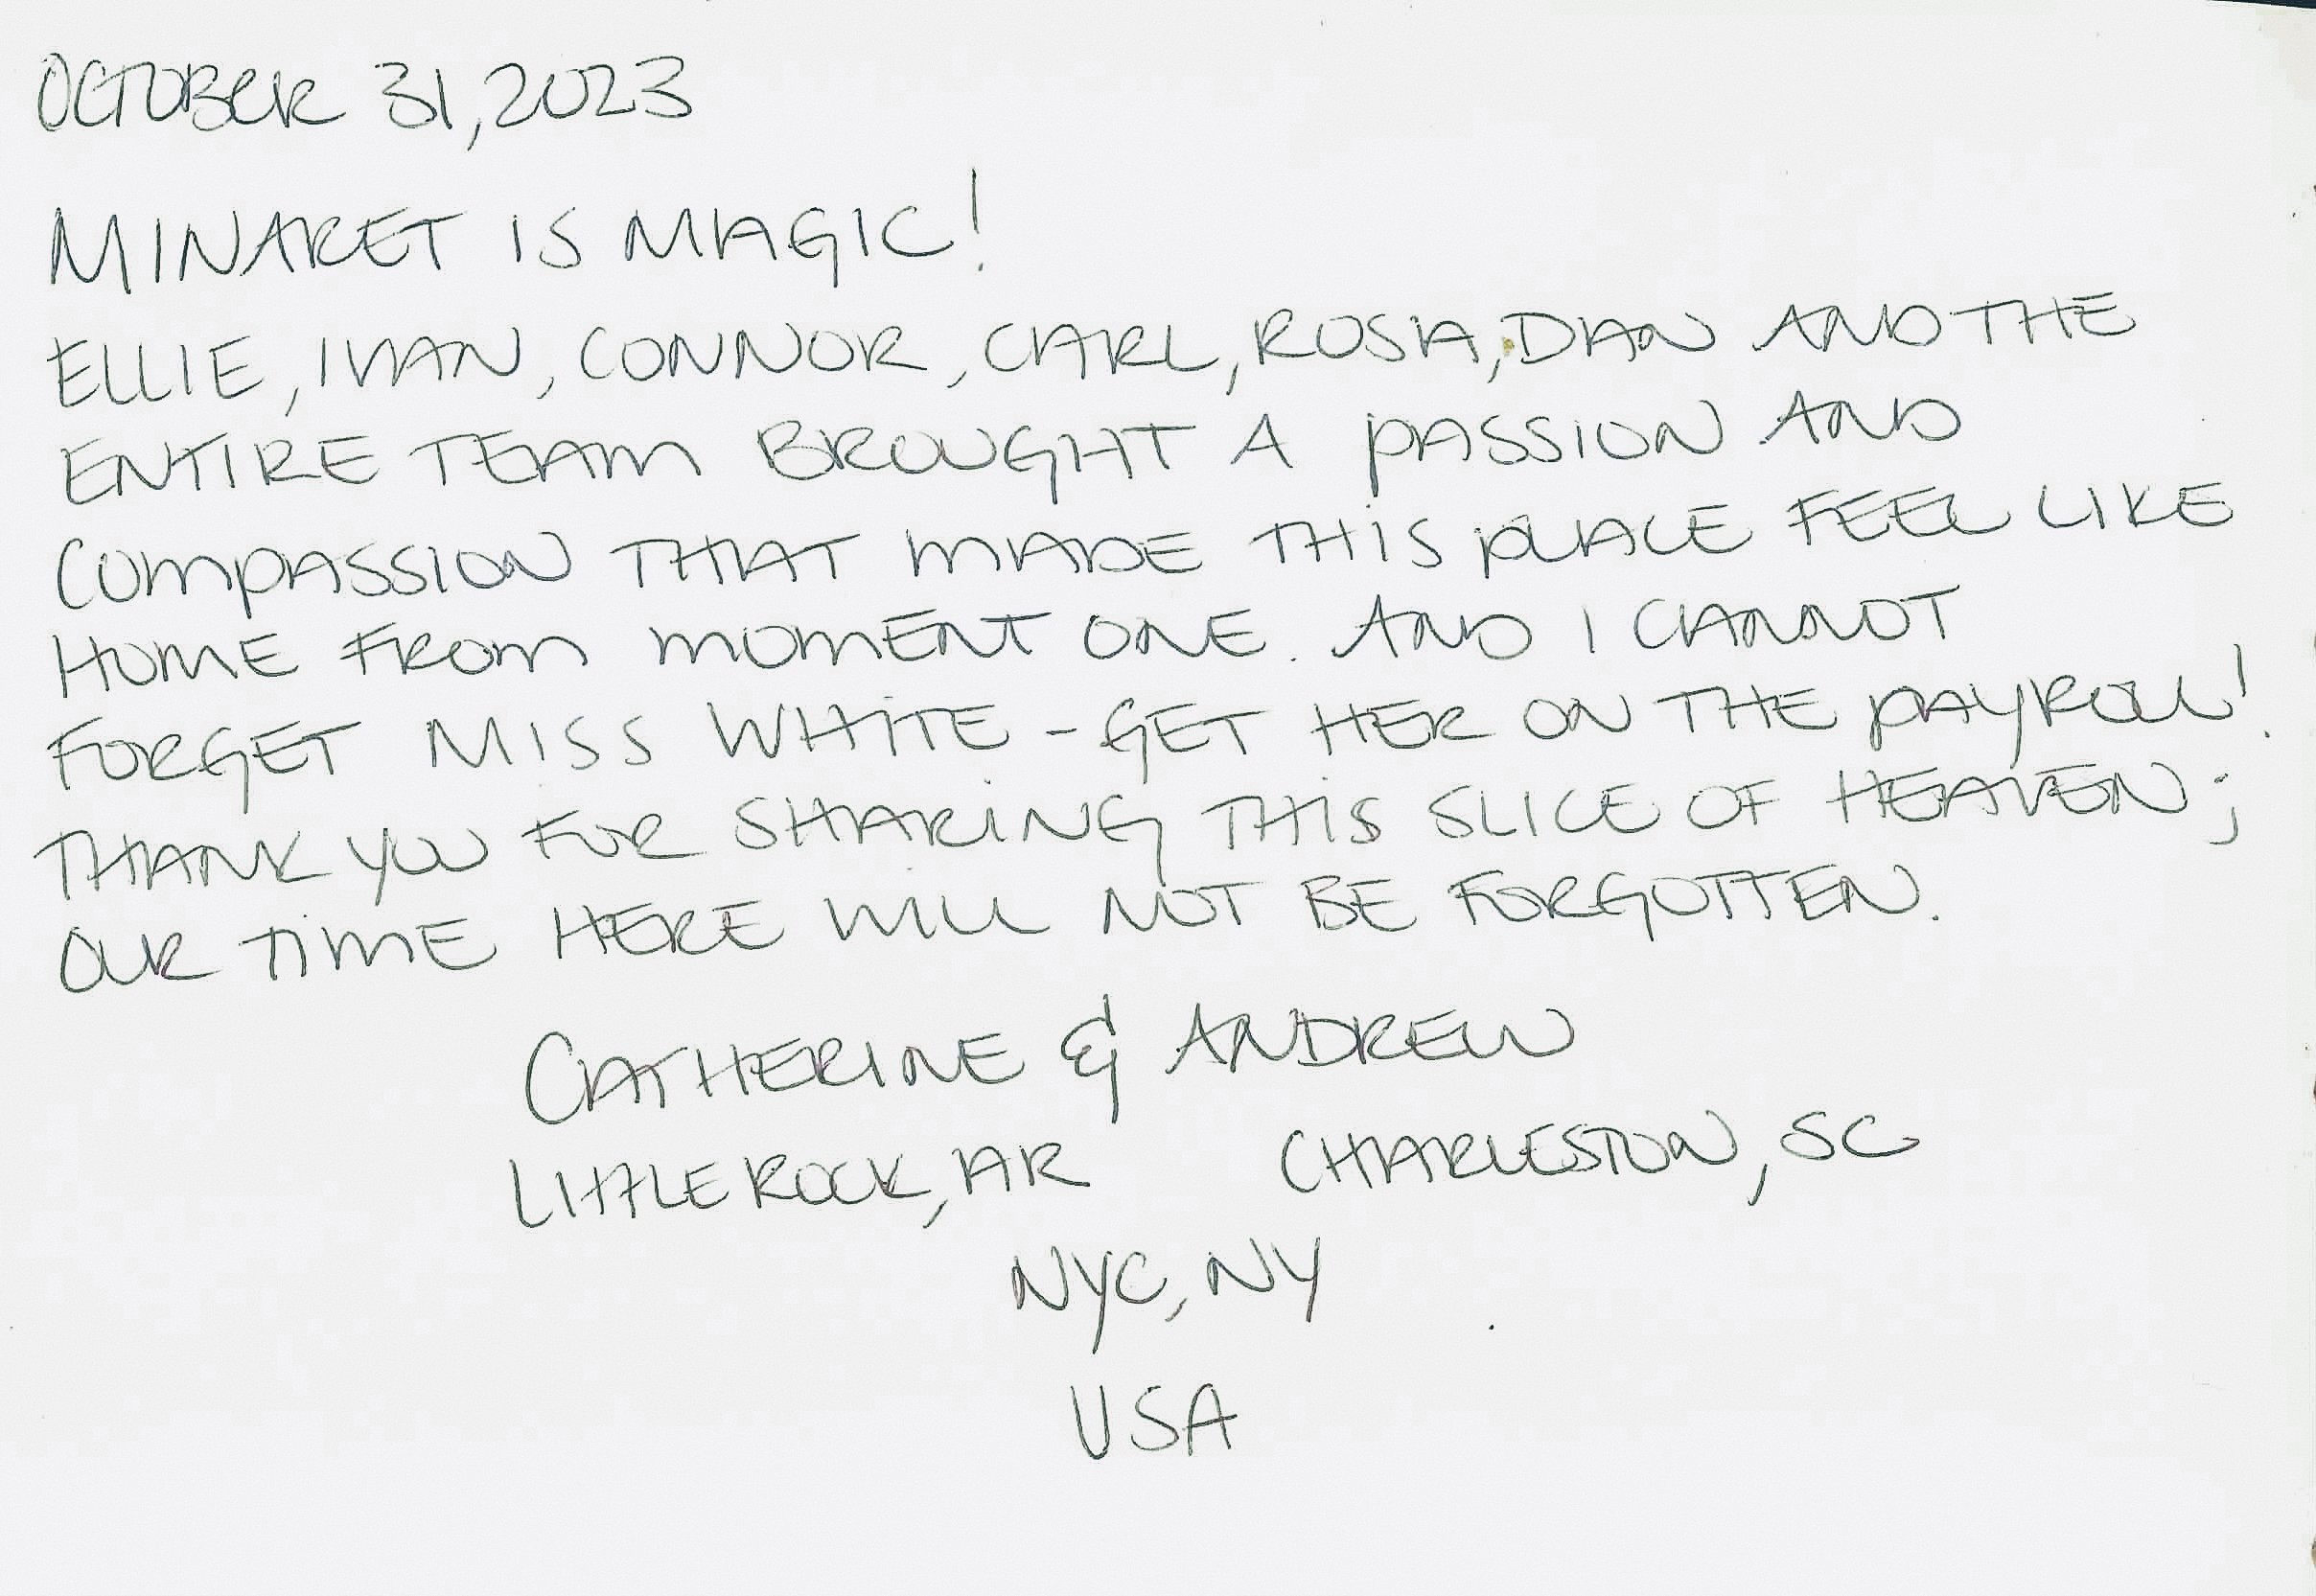 OCTOBER 31, 2023
MINARET IS MAGIC!
ELLIE, IVAN, CONNOR, CARL, ROSIA, DAN AND THE
ENTIRE TEAM BROUGHT A PASSION AND
COMPASSION THAT MADE THIS PLACE FEEL LIKE
HOME FROM MOMENT ONE. AND I CANNOT
FORGET MISS WHITE - GET HER ON THE PAYROLL!
THANK YOU FOR SHARING THIS SLICE OF HEAVEN;
OUR TIME HERE WILL NOT BE FORGOTTEN.
CATHERINE & ANDREW
LITTLE ROCK, AR CHARLESTON, SC
NYC, NY
USA